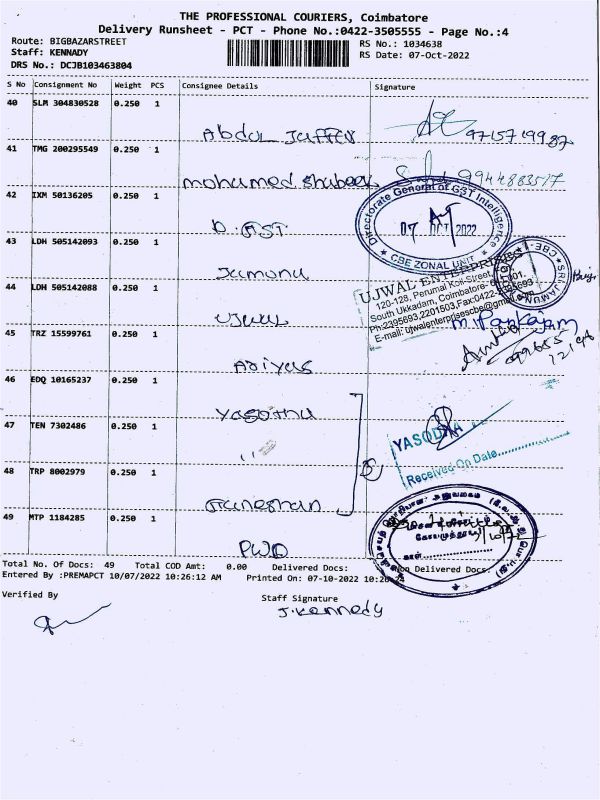 THE PROFESSIONAL COURIERS, Coimbatore
Delivery Runsheet - PCT - Phone No.:0422-3505555 - Page No.:4
Route: BIGBAZARSTREET
Staff: KENNADY
DRS No.: DCJB103463804
RS No.: 1034638
RS Date: 07-Oct-2022
S No Consignment No Weight PCS Consignee Details Signature
40 SLM 304830528 0.250 1
Abdul Jaffer 9715719987
41 TMG 200295549 0.250 1
mohamed shubeek 9944883517
42 IXM 50136205 0.250 1
D. GST
Directorate General of GST Intelligence
07 OCT 2022
CBE ZONAL UNIT
43 LDH 505142093 0.250 1
Jamunu
SRI JAMUNA
CBE
44 LDH 505142088 0.250 1
Ujwal
UJWAL ENTERPRISES
120-128, Perumal Koil Street,
South Ukkadam, Coimbatore-
Ph:2395693,2201503,Fax:0422-
E-mail: ujwalenterprisescbe@gmail.com
M. Pankajam
45 TRZ 15599761 0.250 1
Adiyas
46 EDQ 10165237 0.250 1
Yasothu
47 TEN 7302486 0.250 1
"
YASODHA
Received On Date
48 TRP 8002979 0.250 1
Ganeshan
49 MTP 1184285 0.250 1
PWD
Total No. Of Docs: 49 Total COD Amt: 0.00 Delivered Docs: Non Delivered Docs:
Entered By :PREMAPCT 10/07/2022 10:26:12 AM Printed On: 07-10-2022 10:26:24
Verified By
Staff Signature
J. Kennedy